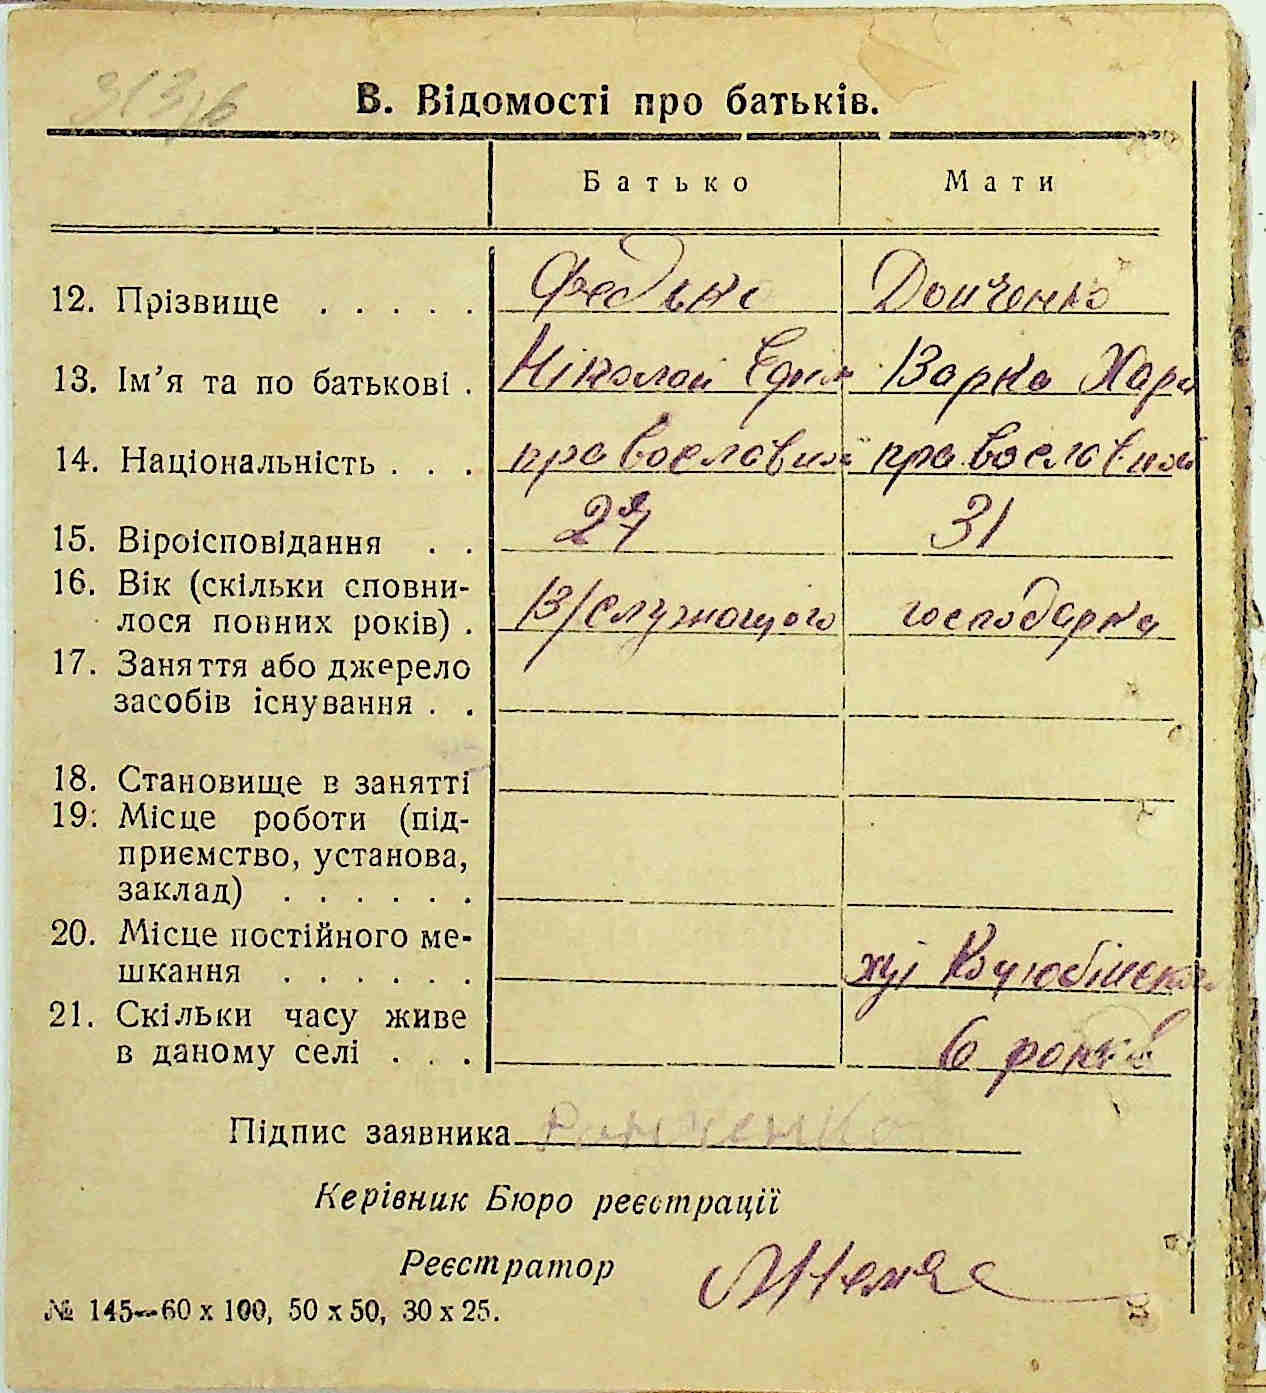 В. Відомості про батьків.
Батько Мати
12. Прізвище . . . . . Федько Донченко
13. Ім'я та по батькові . Ніколай Єфим Варка Хари
14. Національність . . . православний православний
15. Віроісповідання . . 27 31
16. Вік (скільки сповни-
лося повних років) . В/служащого господарка
17. Заняття або джерело
засобів існування . .
18. Становище в занятті
19. Місце роботи (під-
приємство, установа,
заклад) . . . . . .
20. Місце постійного ме-
шкання . . . . . . Коцюбінска
21. Скільки часу живе
в даному селі . . . 6 років
Підпис заявника
Керівник Бюро реєстрації
Реєстратор
№ 145—60 х 100, 50 х 50, 30 х 25.